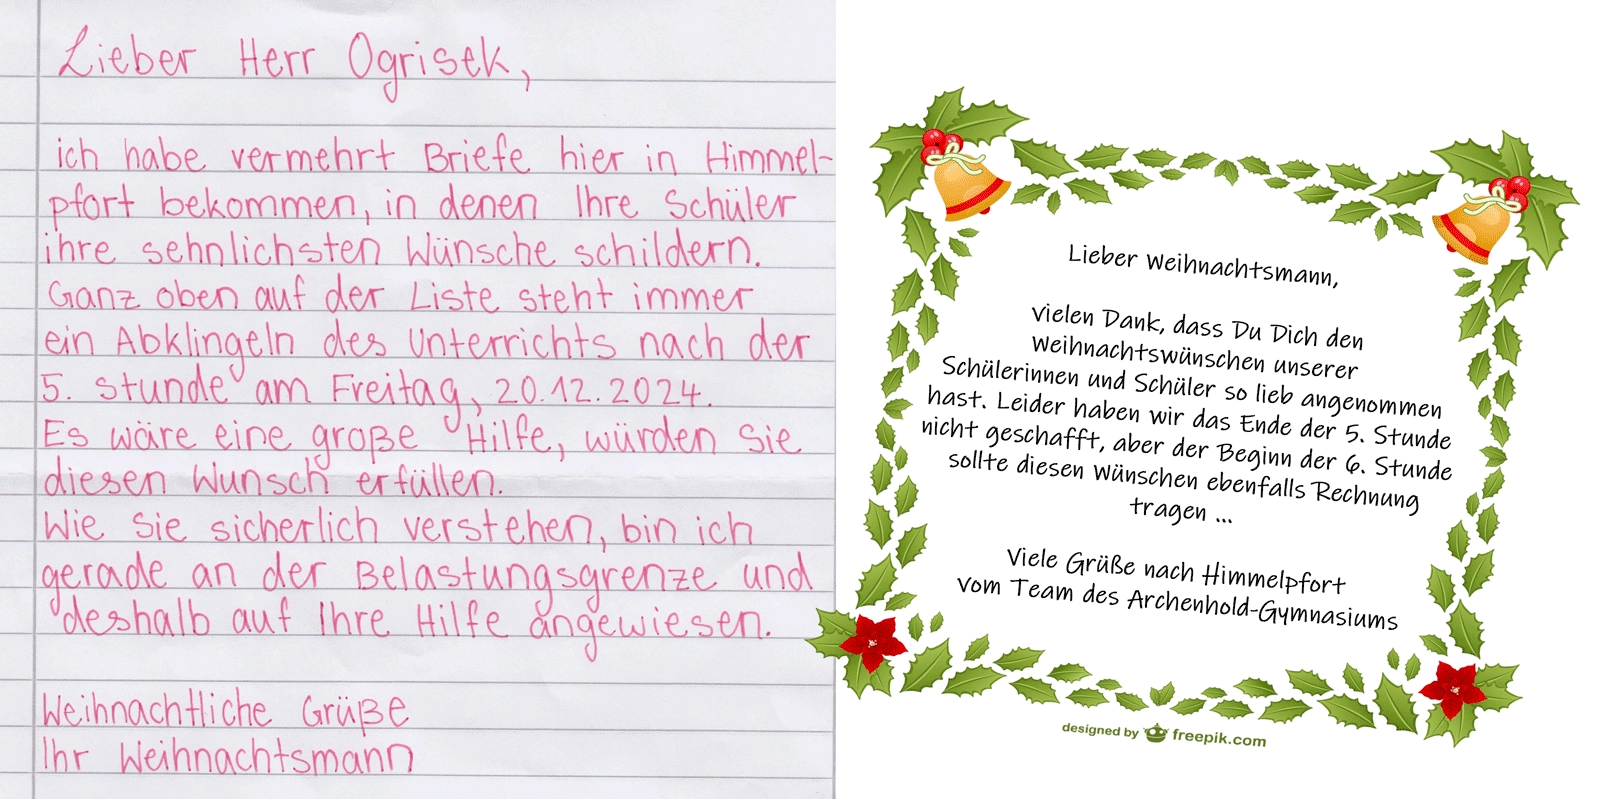 Lieber Herr Ogrisek,
ich habe vermehrt Briefe hier in Himmel-
pfort bekommen, in denen Ihre Schüler
ihre sehnlichsten Wünsche schildern.
Ganz oben auf der Liste steht immer
ein Abklingeln des Unterrichts nach der
5. Stunde am Freitag, 20.12.2024.
Es wäre eine große Hilfe, würden Sie
diesen Wunsch erfüllen.
Wie Sie sicherlich verstehen, bin ich
gerade an der Belastungsgrenze und
deshalb auf Ihre Hilfe angewiesen.
Weihnachtliche Grüße
Ihr Weihnachtsmann
Lieber Weihnachtsmann,
vielen Dank, dass Du Dich den
Weihnachtswünschen unserer
Schülerinnen und Schüler so lieb angenommen
hast. Leider haben wir das Ende der 5. Stunde
nicht geschafft, aber der Beginn der 6. Stunde
sollte diesen Wünschen ebenfalls Rechnung
tragen ...
Viele Grüße nach Himmelpfort
vom Team des Archenhold-Gymnasiums
designed by freepik.com